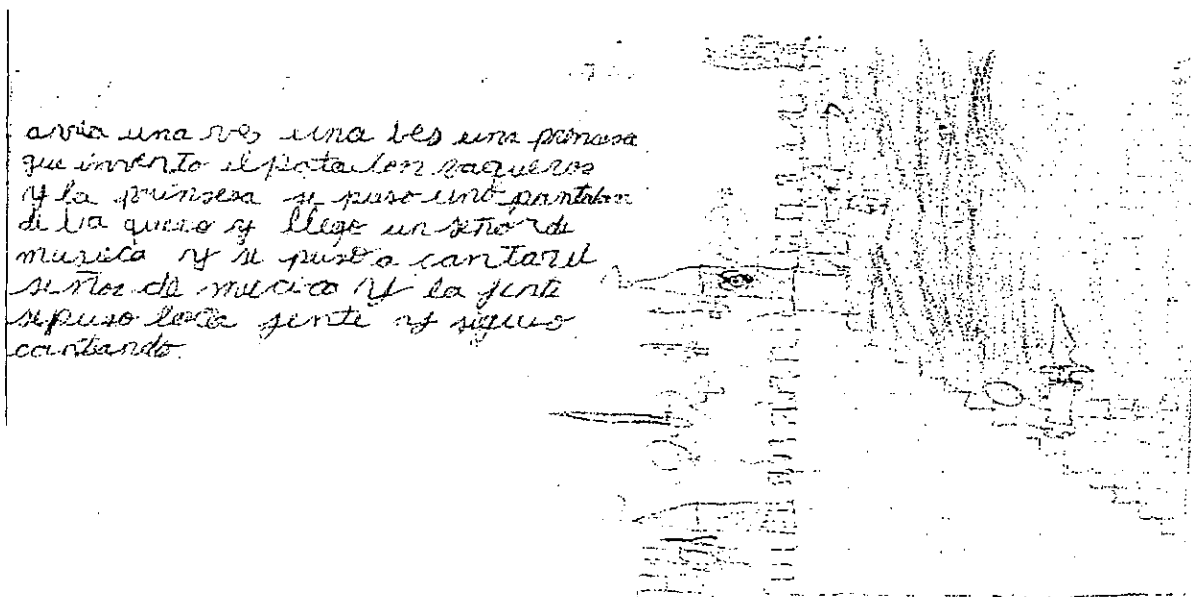 avia una ves una bes una princesa
que invento el patalon vaqueros
y la prinsesa se puso uno pantalon
de ba quero y llego un señor de
musica y se puso a cantar el
señor de mucica y la jente
se puso loca jente y siguio
cantando.